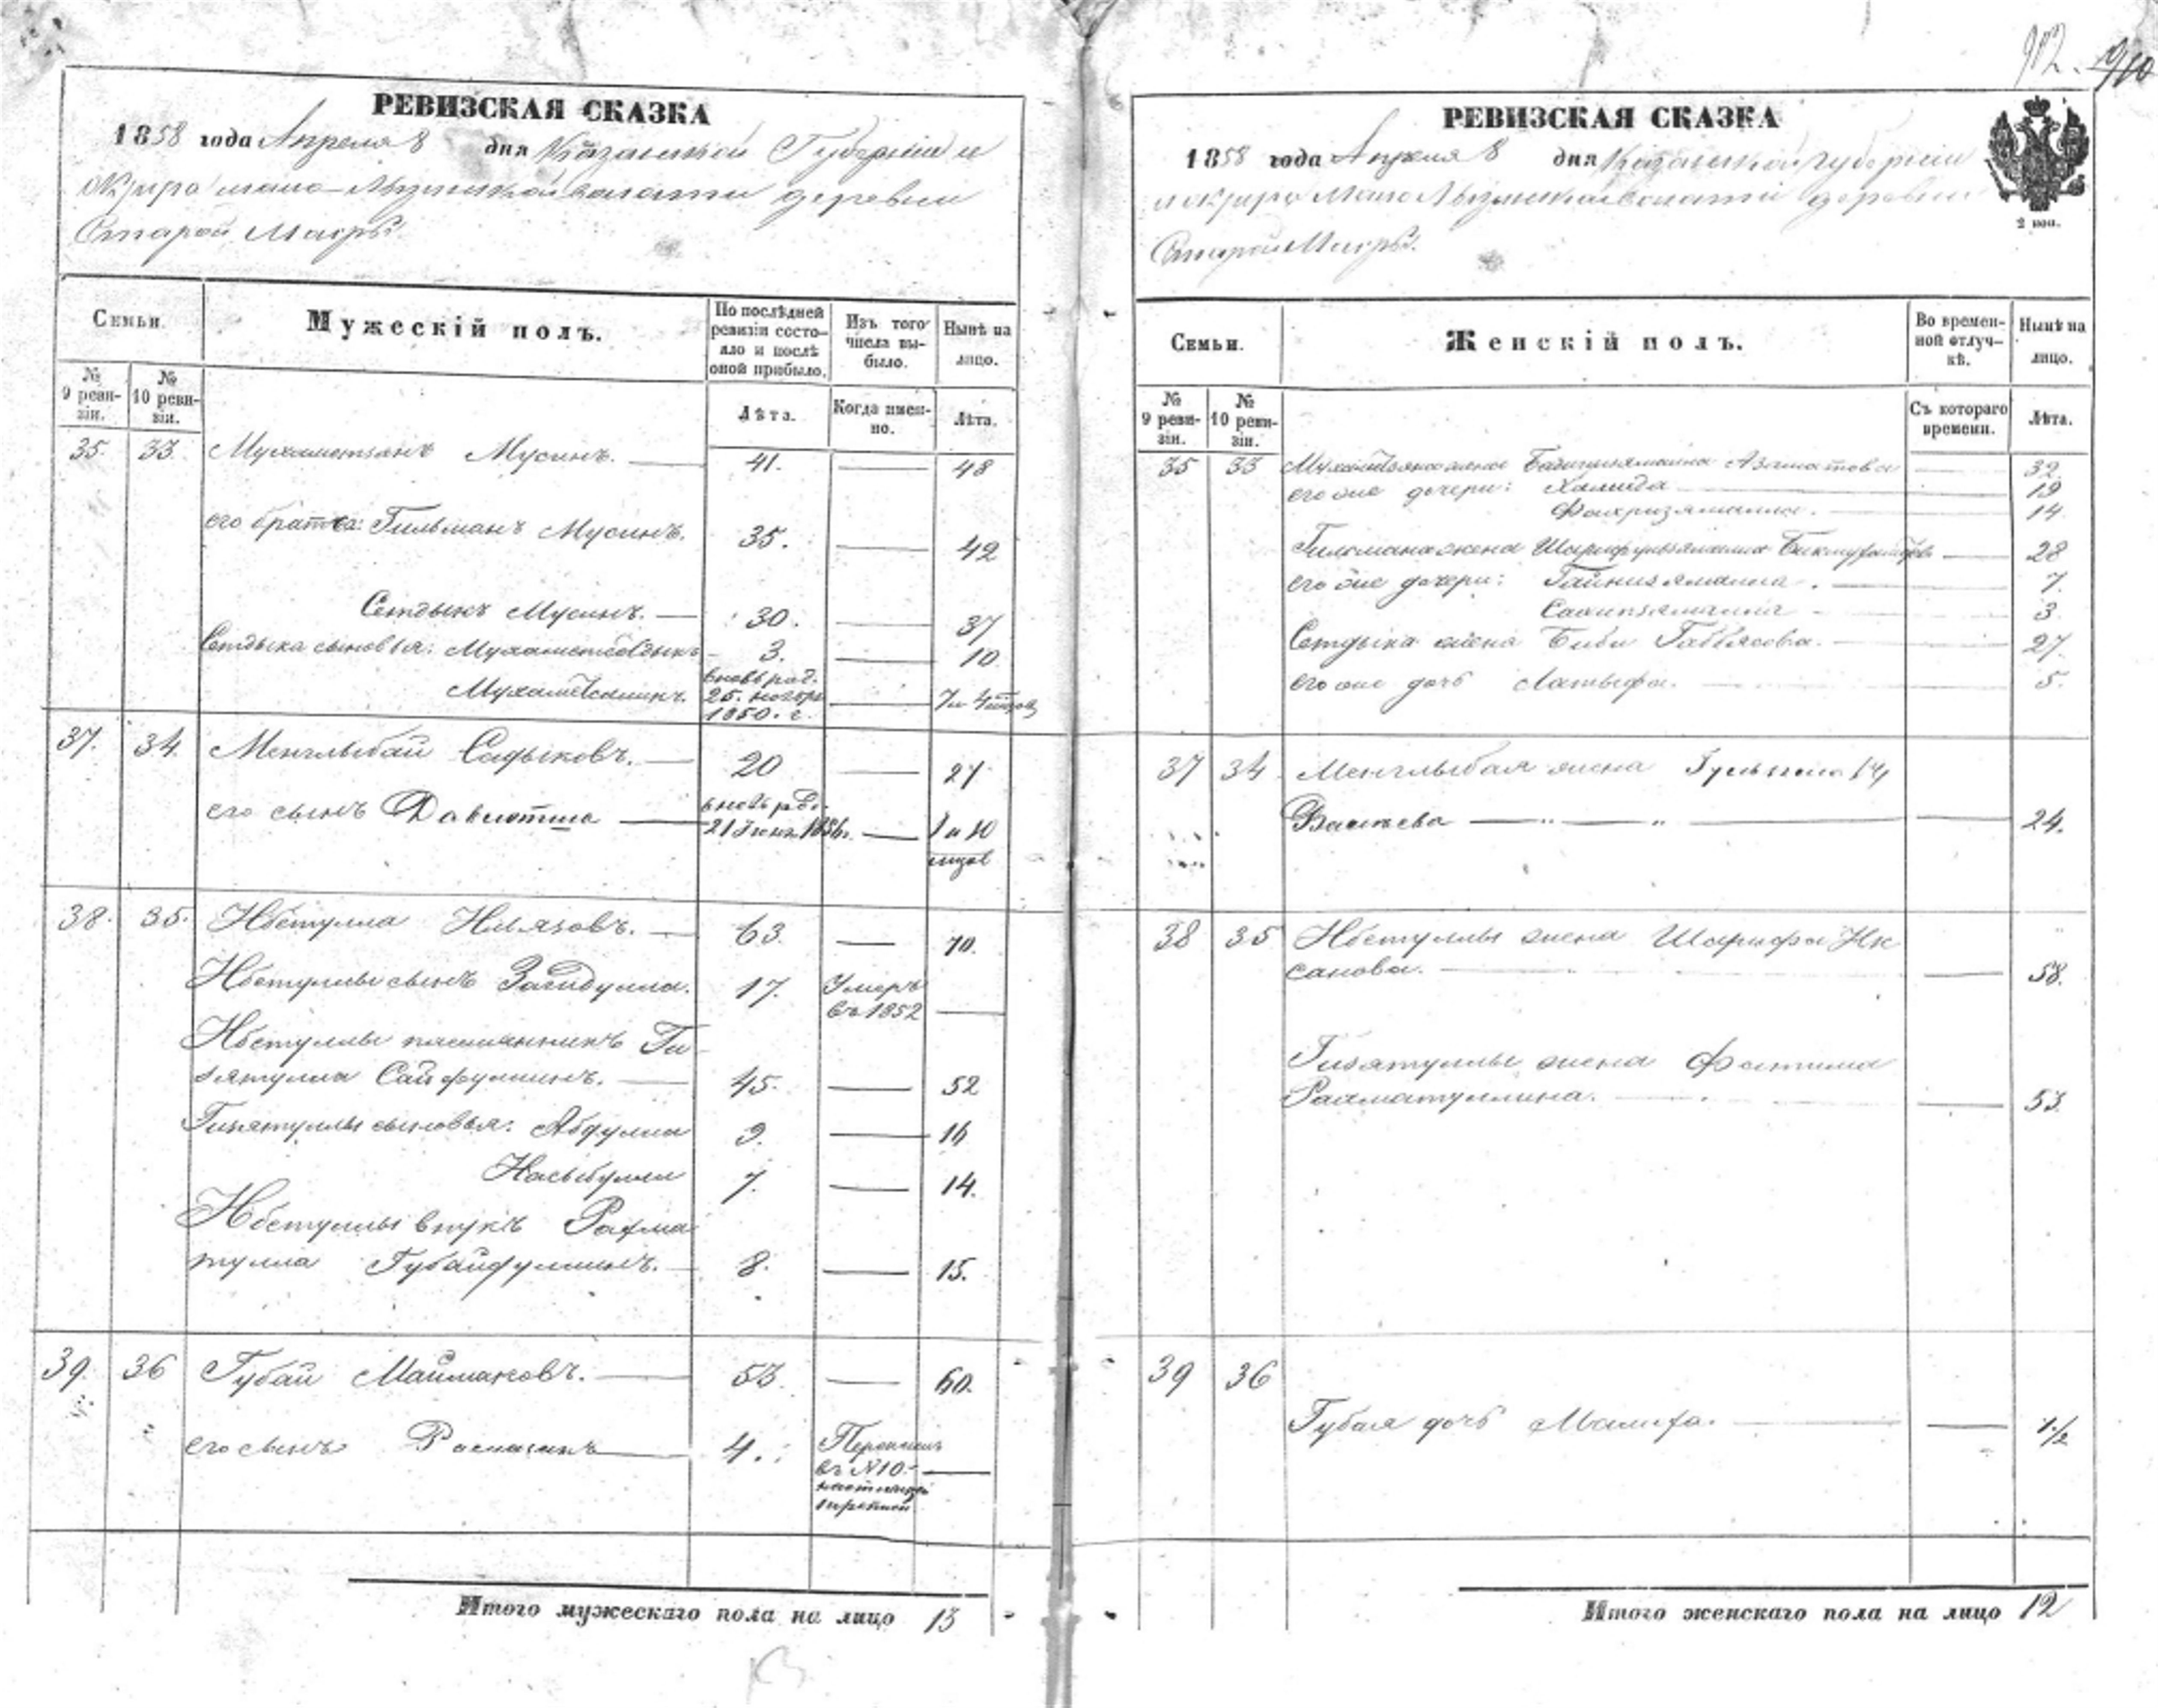 912. 910
РЕВИЗСКАЯ СКАЗКА
1858 года Апреля 8 дня Казанской Губернии и
округа Мало-Лызинской волости деревни
Старой Масры.
Семьи.
Мужескій полъ.
По послѣдней ревизіи состояло и послѣ оной прибыло.
Изъ того числа выбыло.
Нынѣ на лицо.
№ 9 ревизіи.
№ 10 ревизіи.
Лѣта.
Когда именно.
Лѣта.
35. 33. Мухаметзянъ Мусинъ. 41. 48
его братья: Гильманъ Мусинъ. 35. 42
Сетдыкъ Мусинъ. 30. 37
Сетдыка сыновья: 3. 10
вновь род. 25. ноября 1850. г. 7 и 4
37. 34. Менглыбай Садыковъ. 20 27
его сынъ Давлетша вновь род. 21 1856г. 1 и 10 мѣсяц
38. 35. Нбетулла Нилязовъ. 63. 70.
Нбетуллы сынъ Загидулла. 17. Умеръ въ 1852
Нбетуллы племянникъ Ги
зятулла Сайфуллинъ. 45. 52
Гизятуллы сыновья: Абдулла 9. 16
Насыбулла 7. 14.
Нбетуллы внукъ Рахма
тулла Губайдуллинъ. 8. 15.
39. 36 Губай Маймаковъ. 53. 60.
его сынъ 4. въ №10
Итого мужескаго пола на лицо 13
РЕВИЗСКАЯ СКАЗКА
1858 года Апреля 8 дня Казанской губерніи
и округа Мало Лызинской волости деревни
Старой Масры.
2 коп.
Семьи.
Женскій полъ.
Во временной отлучкѣ.
Нынѣ на лицо.
№ 9 ревизіи.
№ 10 ревизіи.
Съ котораго времени.
Лѣта.
35 33 Мухаметзяна жена Азаматова 32.
его же дочери: Халида 19
Фахризямалла. 14
Гильмана жена 28
его же дочери: Гайнизямалла. 7.
3.
Сетдыка жена Биби Габбясова. 27.
его же дочь Латыфа. 5.
37 34 Менглыбая жена
24.
38 35 Нбетуллы жена Шарифа Ик
санова. 58.
Гизятуллы жена Фатима
Рахматуллина. 53.
39 36
Губая дочь 1/2
Итого женскаго пола на лицо 12